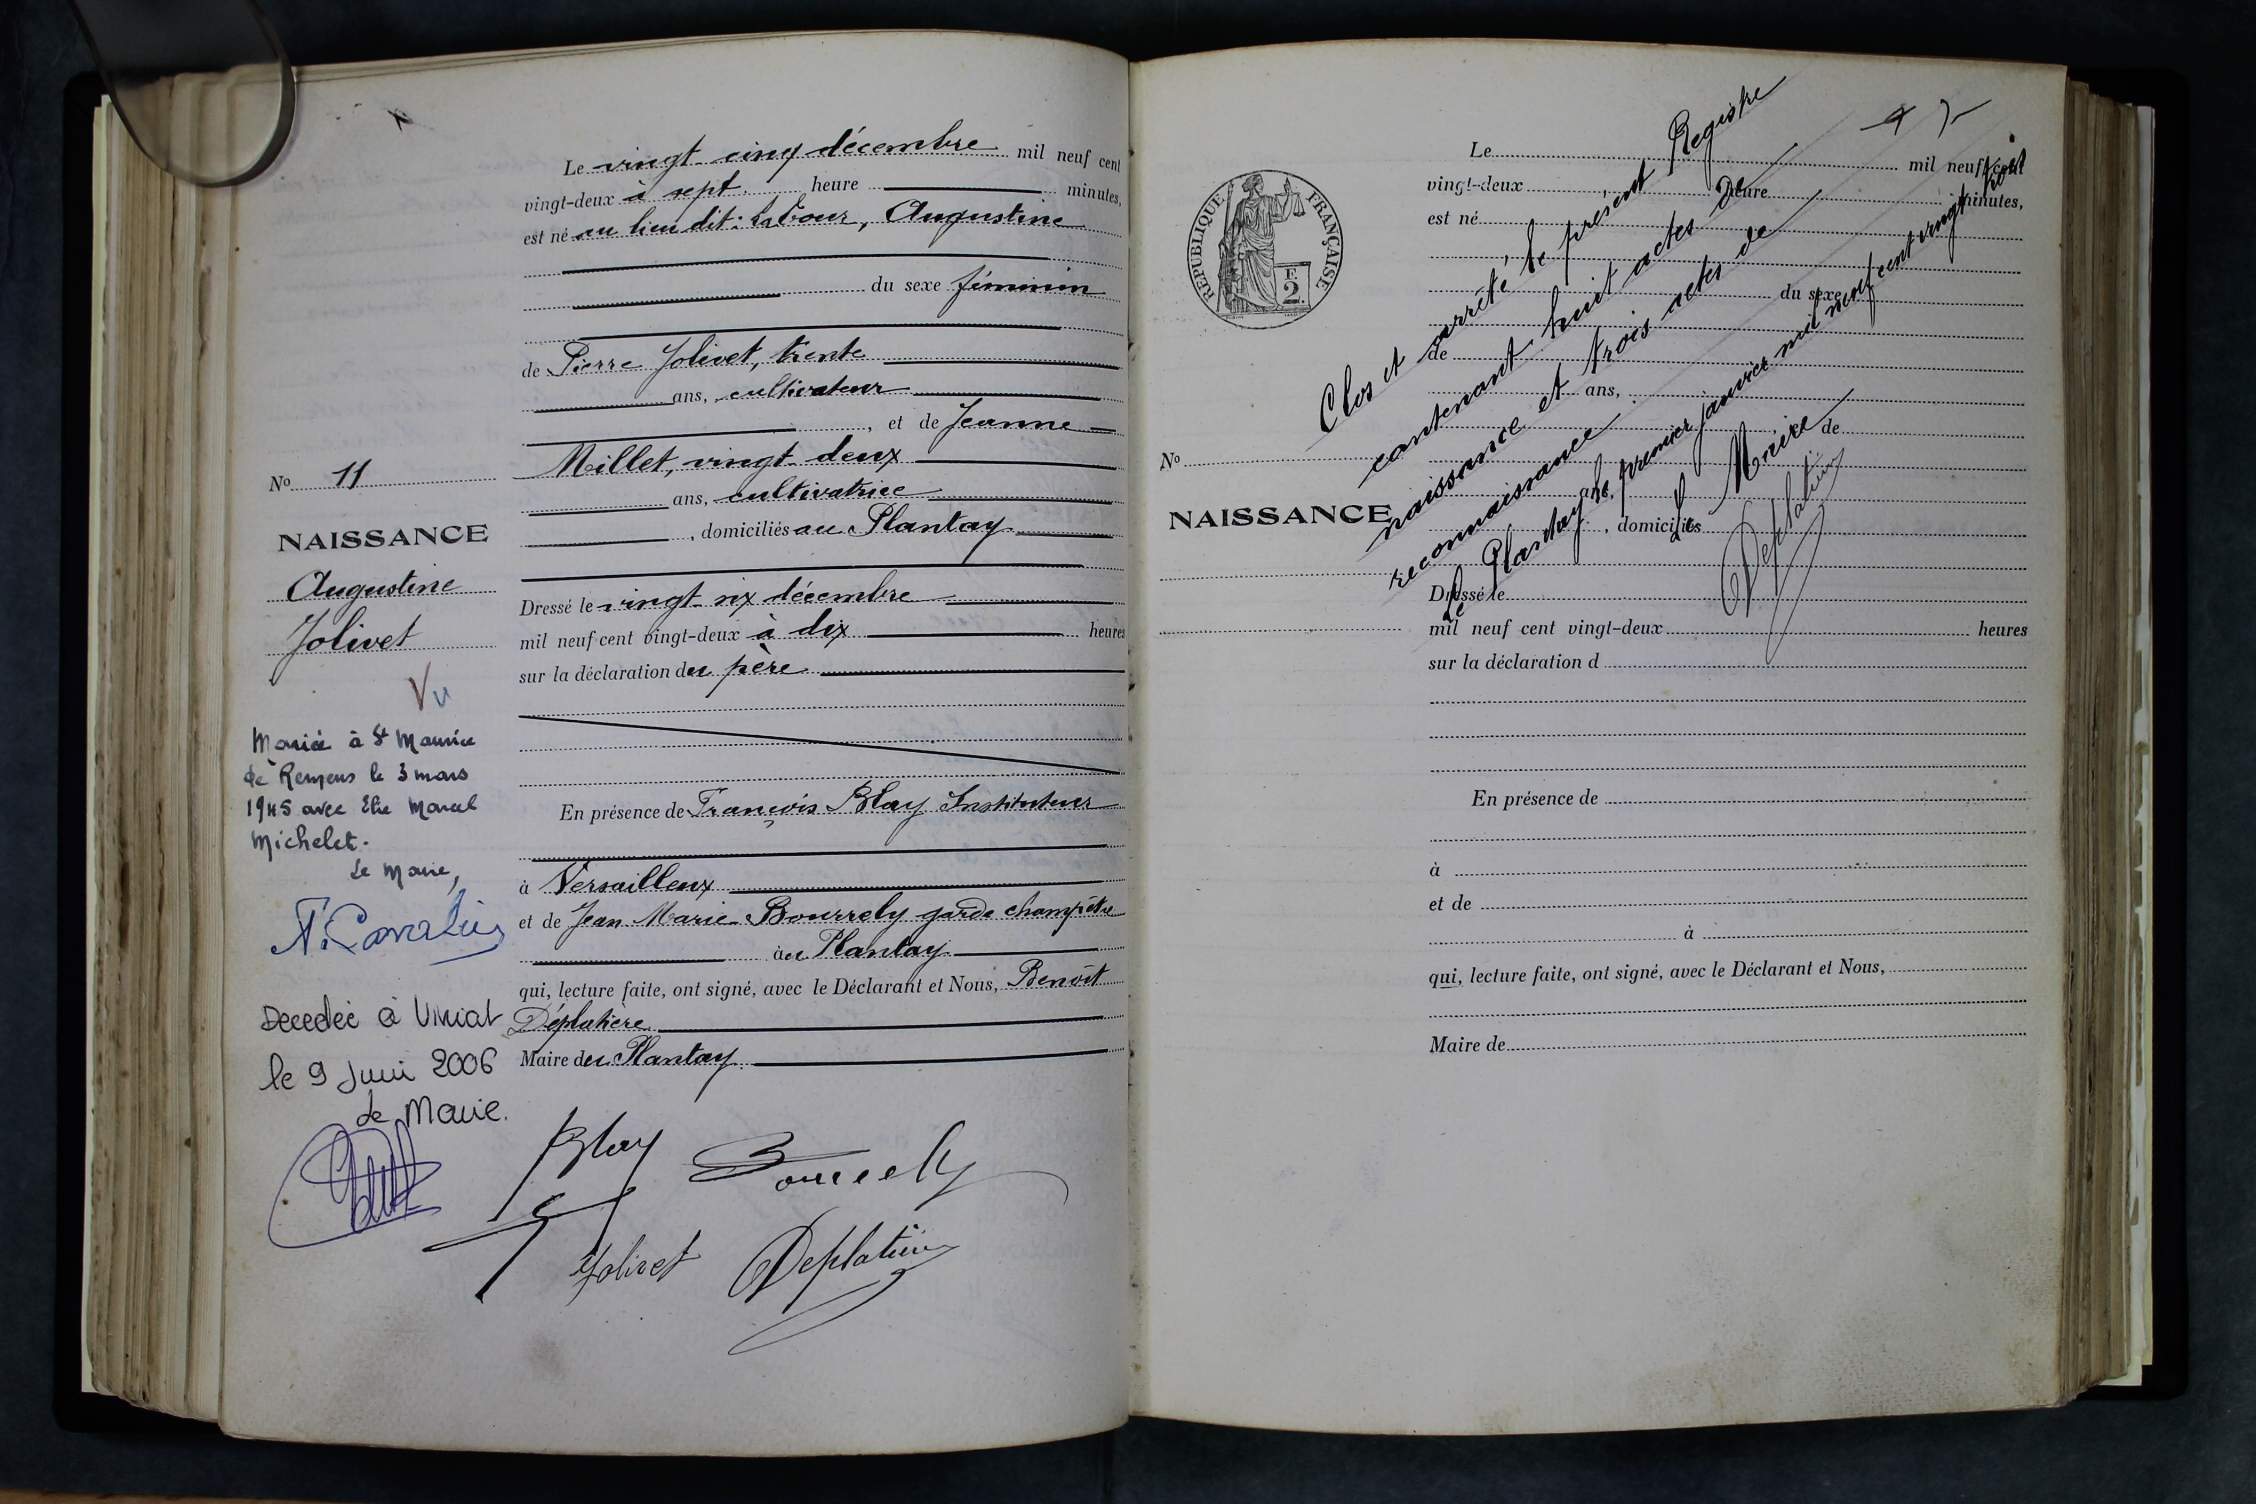 Le vingt cinq décembre mil neuf cent
vingt-deux à sept heure minutes,
est né au lieu dit: La Tour, Augustine
du sexe féminin
de Pierre Jolivet, trente
ans, cultivateur
, et de Jeanne
Millet, vingt deux
ans, cultivatrice
, domiciliés au Plantay
Dressé le vingt six décembre
mil neuf cent vingt-deux à dix heures
sur la déclaration du père
En présence de François Blay Instituteur
à Versailleux
et de Jean Marie Bourrely garde champêtre
au Plantay
qui, lecture faite, ont signé, avec le Déclarant et Nous, Benoît
Déplatière
Maire du Plantay
Blay
Bourrely
Jolivet
Deplatière
No 11
NAISSANCE
Augustine
Jolivet
Vu
Mariée à St Maurice
de Remens le 3 mars
1945 avec Elie Marcel
Michelet.
Le Maire,
Decedée à Viriat
le 9 Juin 2006
le Maire.
RÉPUBLIQUE FRANÇAISE
E.
2
No
NAISSANCE
Le mil neuf cent
vingt-deux heure minutes,
est né
du sexe
de
ans,
de
ans,
, domiciliés
Dressé le
mil neuf cent vingt-deux heures
sur la déclaration d
En présence de
à
et de
à
qui, lecture faite, ont signé, avec le Déclarant et Nous,
Maire de
Clos et arrêté le présent Registre
contenant huit actes de
naissance et trois actes de
reconnaissance
Le Plantay le premier janvier mil neuf cent vingt trois
Le Maire
Deplatière